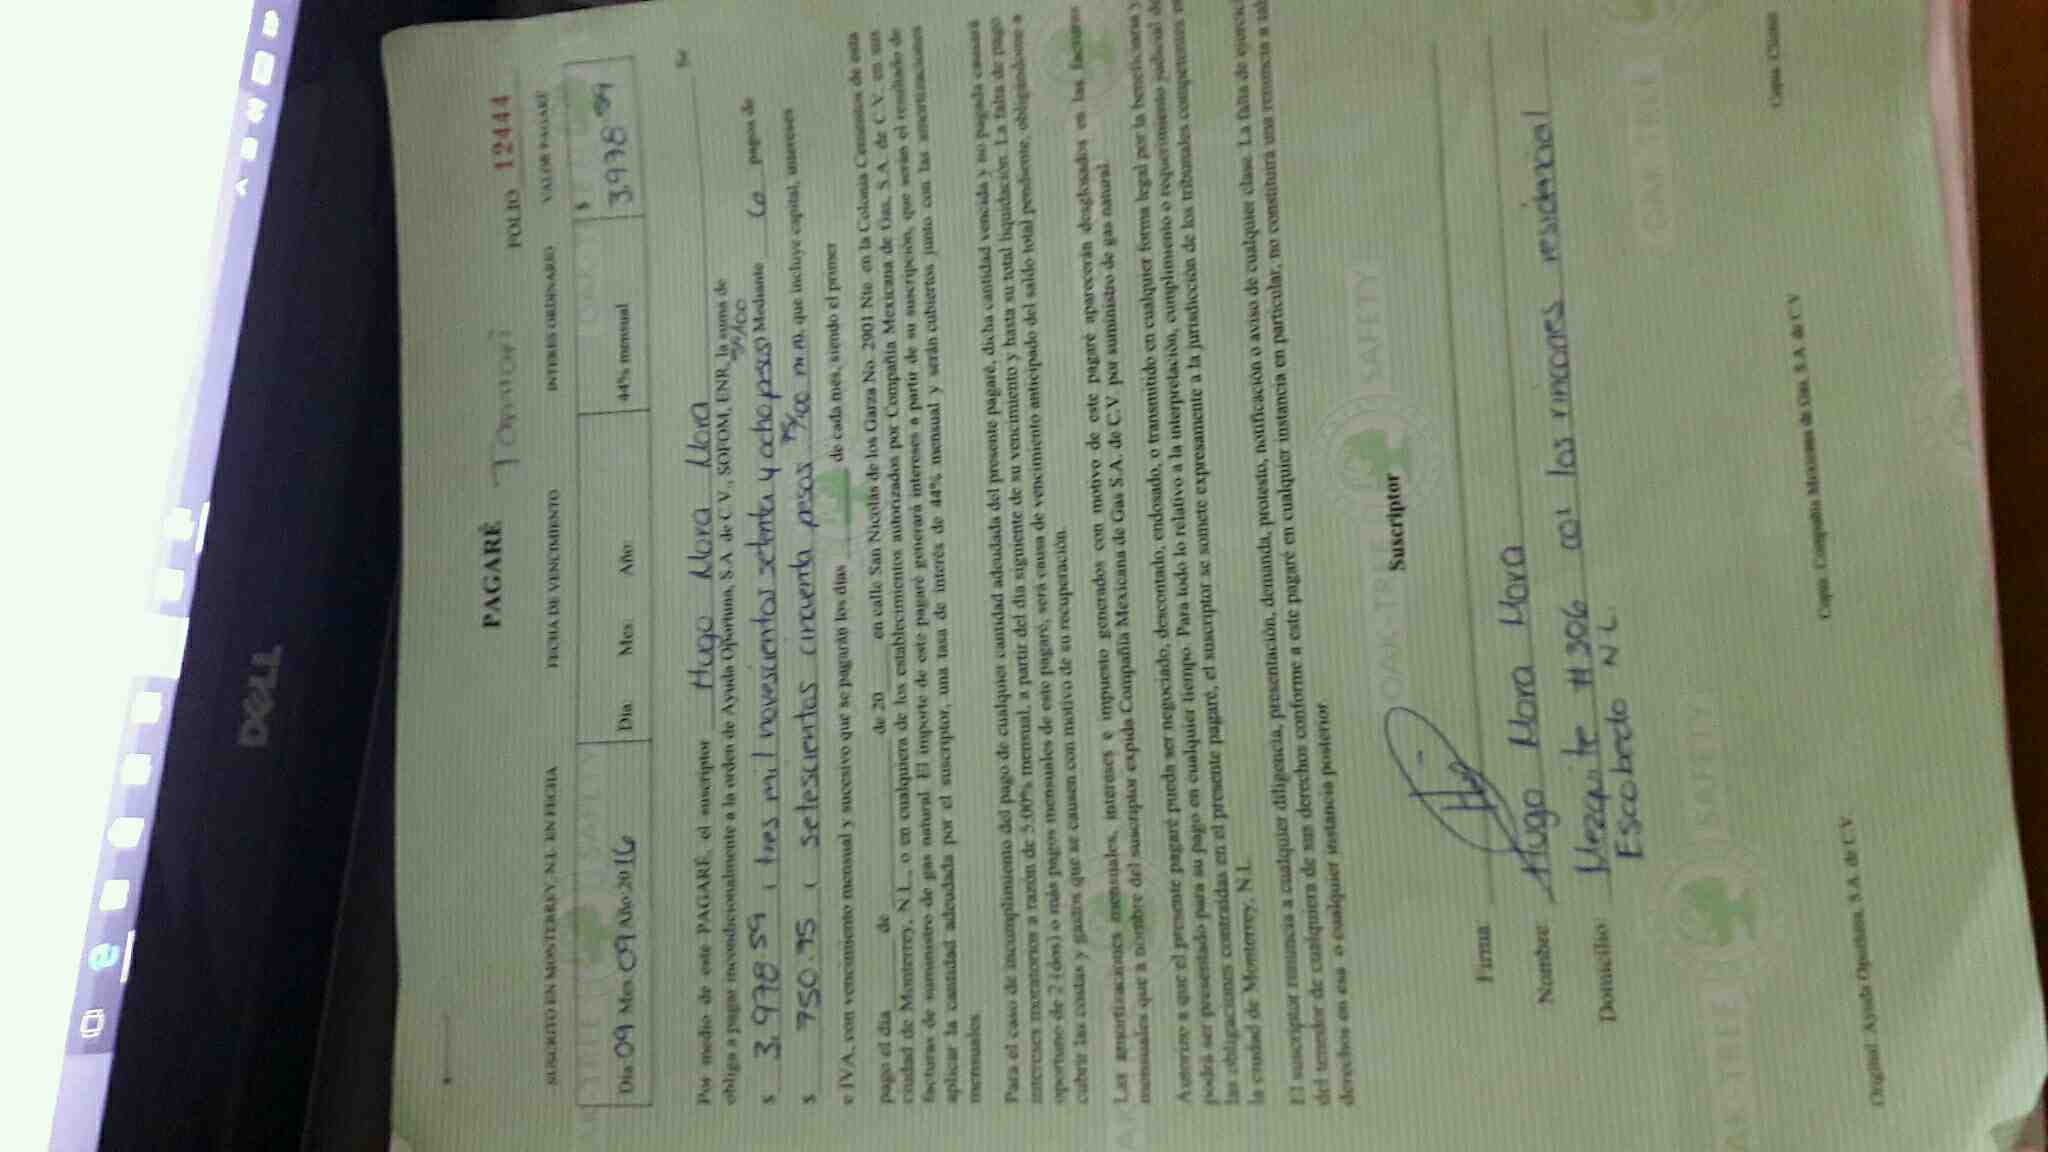 DELL
PAGARÉ
FOLIO 12444
SUSCRITO EN MONTERREY, N.L. EN FECHA FECHA DE VENCIMIENTO INTERES ORDINARIO VALOR PAGARÉ
Día 09 Mes 09 Año 2016 Día: Mes: Año: 44% mensual $ 3,978 59
Por medio de este PAGARÉ, el suscriptor Hugo Mora Mora Se
obliga a pagar incondicionalmente a la orden de Ayuda Oportuna, S.A. de C.V., SOFOM, ENR, la suma de
$ 3,978 59 ( tres mil novescientos setenta y ocho pesos 59/100 ) Mediante 60 pagos de
$ 750.75 ( setescientos cincuenta pesos 75/100 m.n. que incluye capital, intereses
e IVA, con vencimiento mensual y sucesivo que se pagarán los días de cada mes, siendo el primer
pago el día de de 20 en calle San Nicolás de los Garza No. 2901 Nte. en la Colonia Cementos de esta
ciudad de Monterrey, N.L., o en cualquiera de los establecimientos autorizados por Compañía Mexicana de Gas, S.A. de C.V. en sus
facturas de suministro de gas natural. El importe de este pagaré generará intereses a partir de su suscripción, que serán el resultado de
aplicar la cantidad adeudada por el suscriptor, una tasa de interés de 44% mensual y serán cubiertos junto con las amortizaciones
mensuales.
Para el caso de incumplimiento del pago de cualquier cantidad adeudada del presente pagaré, dicha cantidad vencida y no pagada causará
intereses moratorios a razón de 5.00% mensual, a partir del día siguiente de su vencimiento y hasta su total liquidación. La falta de pago
oportuno de 2 (dos) o más pagos mensuales de este pagaré, será causa de vencimiento anticipado del saldo total pendiente, obligándome a
cubrir las costas y gastos que se causen con motivo de su recuperación.
Las amortizaciones mensuales, intereses e impuesto generados con motivo de este pagaré aparecerán desglosados en las facturas
mensuales que a nombre del suscriptor expida Compañía Mexicana de Gas S.A. de C.V. por suministro de gas natural.
Autorizo a que el presente pagaré pueda ser negociado, descontado, endosado, o transmitido en cualquier forma legal por la beneficiaria y
podrá ser presentado para su pago en cualquier tiempo. Para todo lo relativo a la interpretación, cumplimiento o requerimiento judicial de
las obligaciones contraídas en el presente pagaré, el suscriptor se somete expresamente a la jurisdicción de los tribunales competentes
la ciudad de Monterrey, N.L.
El suscriptor renuncia a cualquier diligencia, presentación, demanda, protesto, notificación o aviso de cualquier clase. La falta de
del tenedor de cualquiera de sus derechos conforme a este pagaré en cualquier instancia en particular, no constituirá una renuncia a
derechos en esa o cualquier instancia posterior.
Suscriptor
Firma:
Nombre: Hugo Mora Mora
Domicilio: Mezquite #306 col las rincones residencial
Escobedo N.L.
Original: Ayuda Oportuna, S.A. de C.V. Copia: Compañía Mexicana de Gas, S.A. de C.V. Copia: Cliente
OAK TREE SAFETY